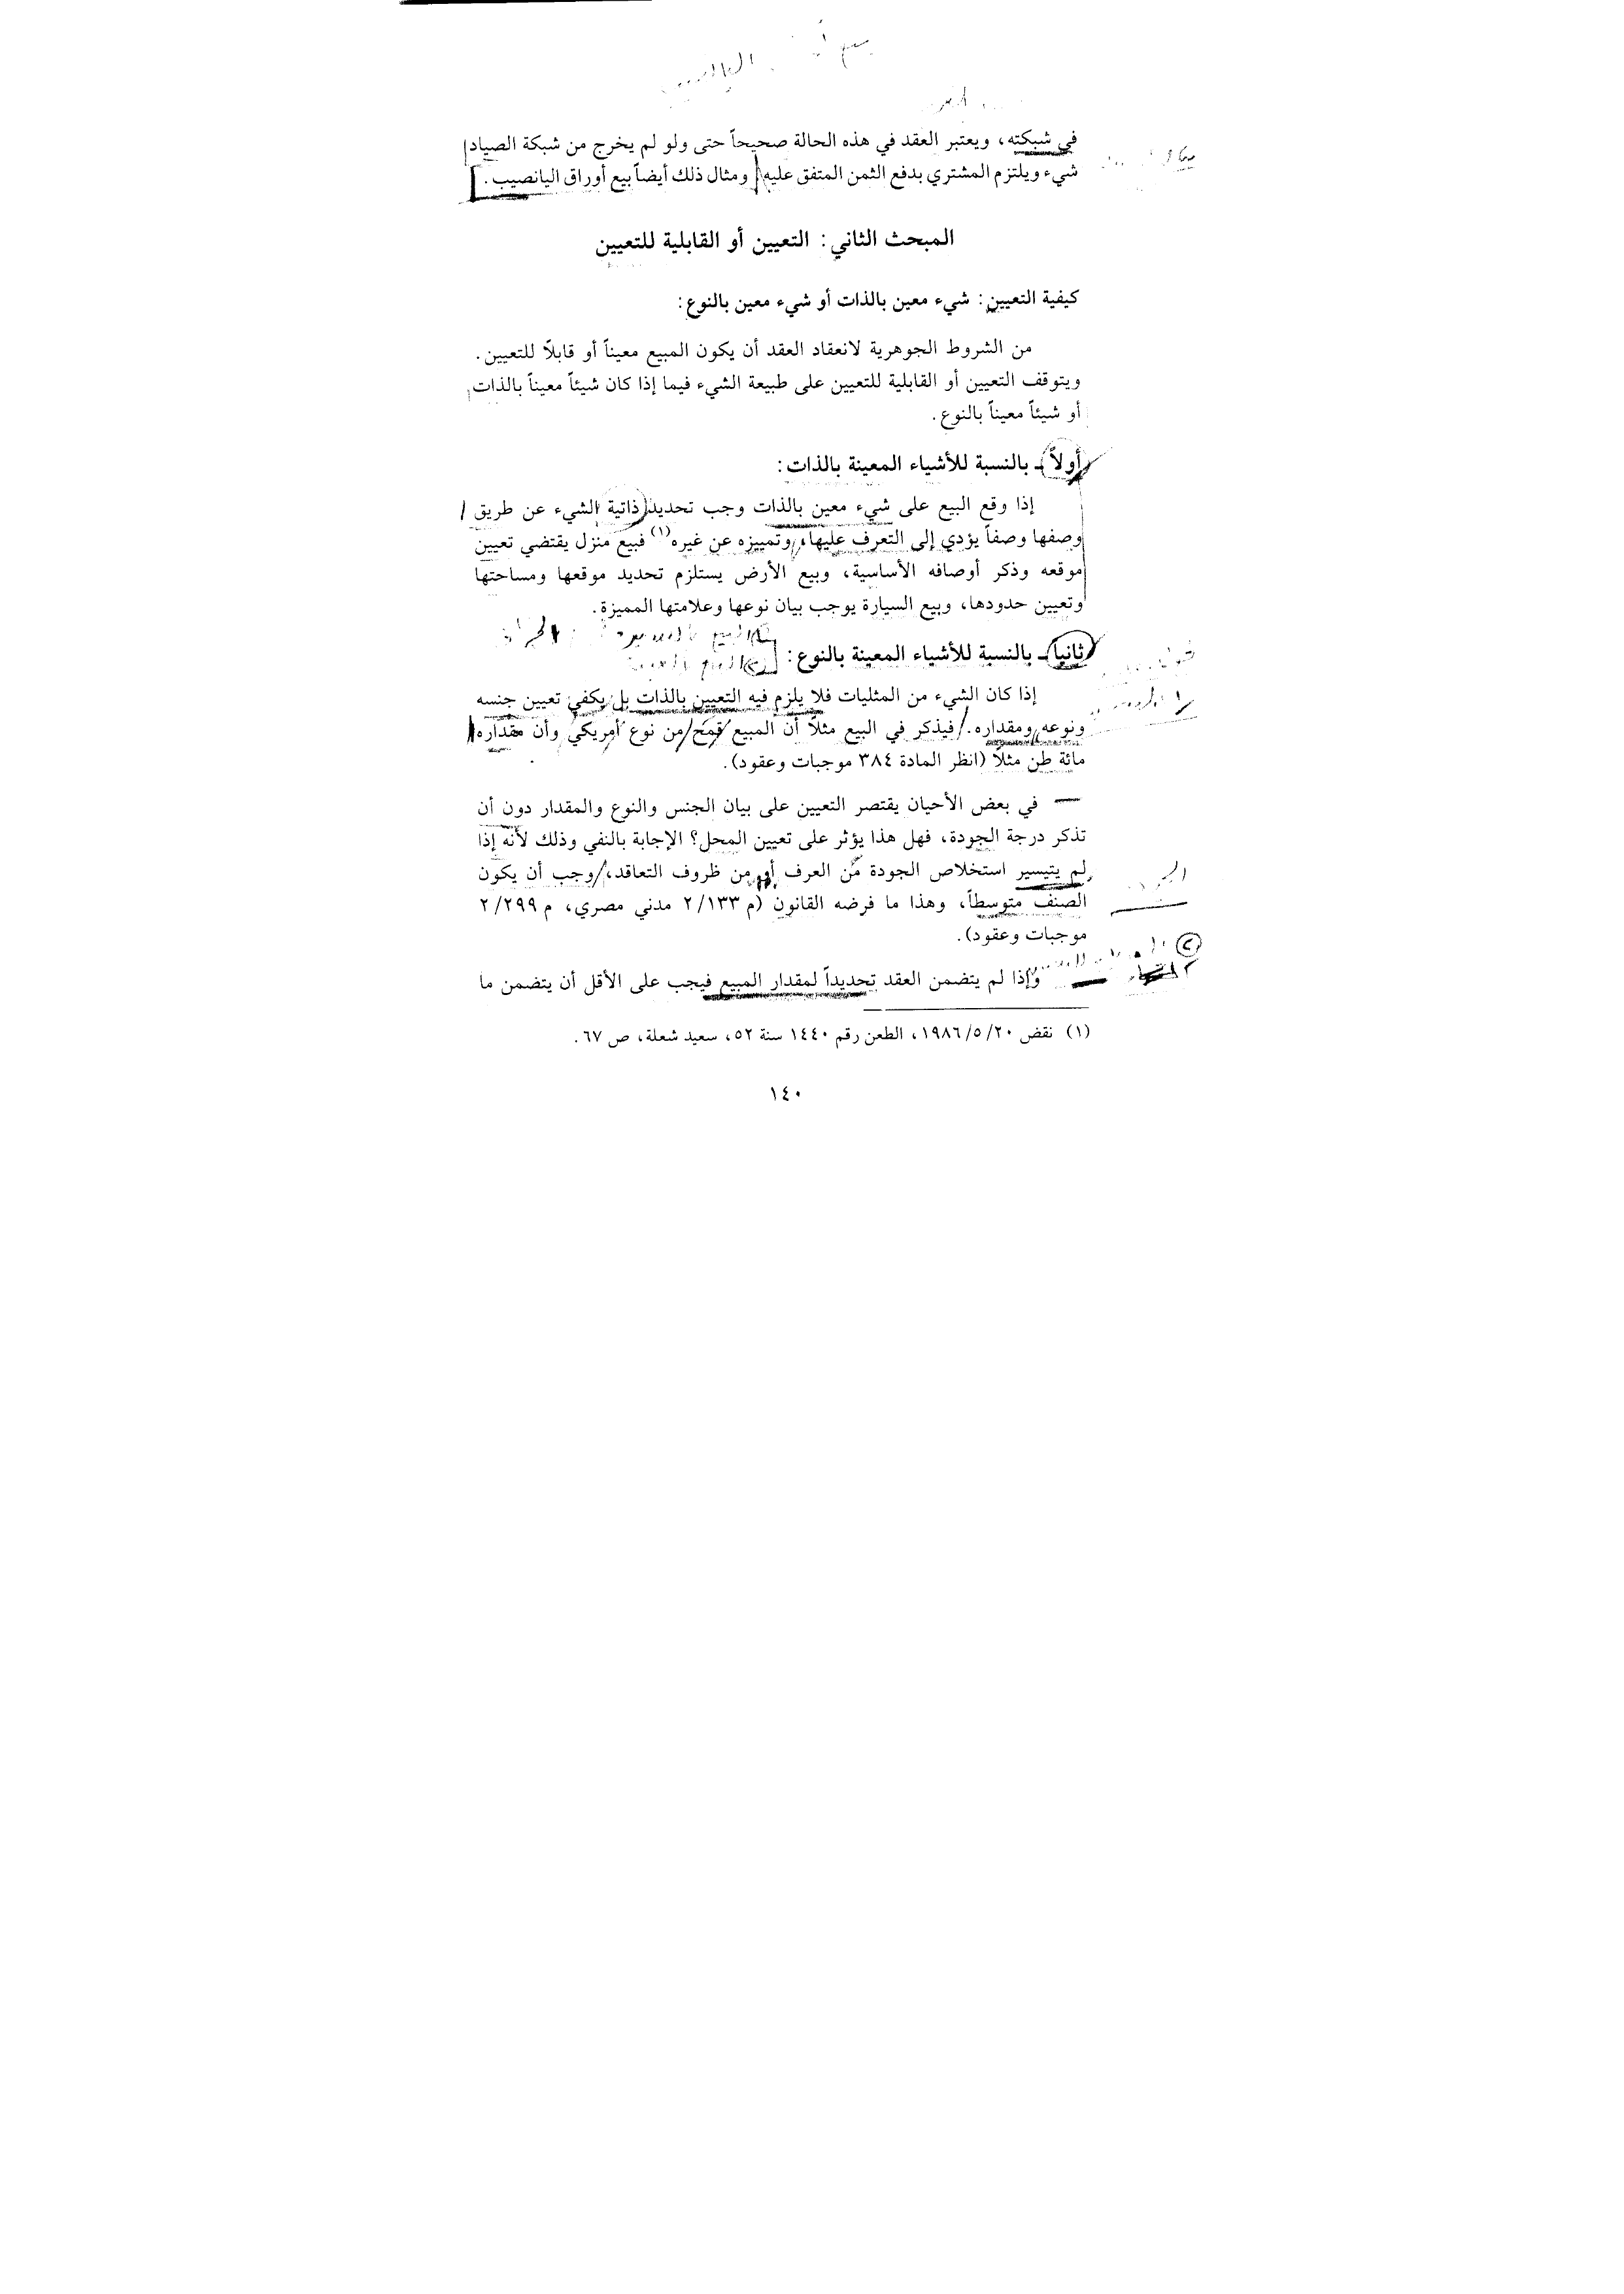 في شبكته، ويعتبر العقد في هذه الحالة صحيحاً حتى ولو لم يخرج من شبكة الصياد
شيء ويلتزم المشتري بدفع الثمن المتفق عليه ومثال ذلك أيضاً بيع أوراق اليانصيب.
المبحث الثاني: التعيين أو القابلية للتعيين
كيفية التعيين: شيء معين بالذات أو شيء معين بالنوع:
من الشروط الجوهرية لانعقاد العقد أن يكون المبيع معيناً أو قابلاً للتعيين.
ويتوقف التعيين أو القابلية للتعيين على طبيعة الشيء فيما إذا كان شيئاً معيناً بالذات
أو شيئاً معيناً بالنوع.
أولاً - بالنسبة للأشياء المعينة بالذات:
إذا وقع البيع على شيء معين بالذات وجب تحديد ذاتية الشيء عن طريق
وصفها وصفاً يؤدي إلى التعرف عليها، وتمييزه عن غيره(١) فبيع منزل يقتضي تعيين
موقعه وذكر أوصافه الأساسية، وبيع الأرض يستلزم تحديد موقعها ومساحتها
وتعيين حدودها، وبيع السيارة يوجب بيان نوعها وعلامتها المميزة.
ثانياً - بالنسبة للأشياء المعينة بالنوع:
إذا كان الشيء من المثليات فلا يلزم فيه التعيين بالذات بل يكفي تعيين جنسه
ونوعه ومقداره. فيذكر في البيع مثلاً أن المبيع قمح من نوع أمريكي وأن مقداره
مائة طن مثلاً (انظر المادة ٣٨٤ موجبات وعقود).
— في بعض الأحيان يقتصر التعيين على بيان الجنس والنوع والمقدار دون أن
تذكر درجة الجودة، فهل هذا يؤثر على تعيين المحل؟ الإجابة بالنفي وذلك لأنه إذا
لم يتيسير استخلاص الجودة من العرف أو من ظروف التعاقد، وجب أن يكون
الصنف متوسطاً، وهذا ما فرضه القانون (م ٢/١٣٣ مدني مصري، م ٢/٢٩٩
موجبات وعقود).
— وإذا لم يتضمن العقد تحديداً لمقدار المبيع فيجب على الأقل أن يتضمن ما
(١) نقض ١٩٨٦/٥/٢٠، الطعن رقم ١٤٤٠ سنة ٥٢، سعيد شعلة، ص ٦٧.
١٤٠